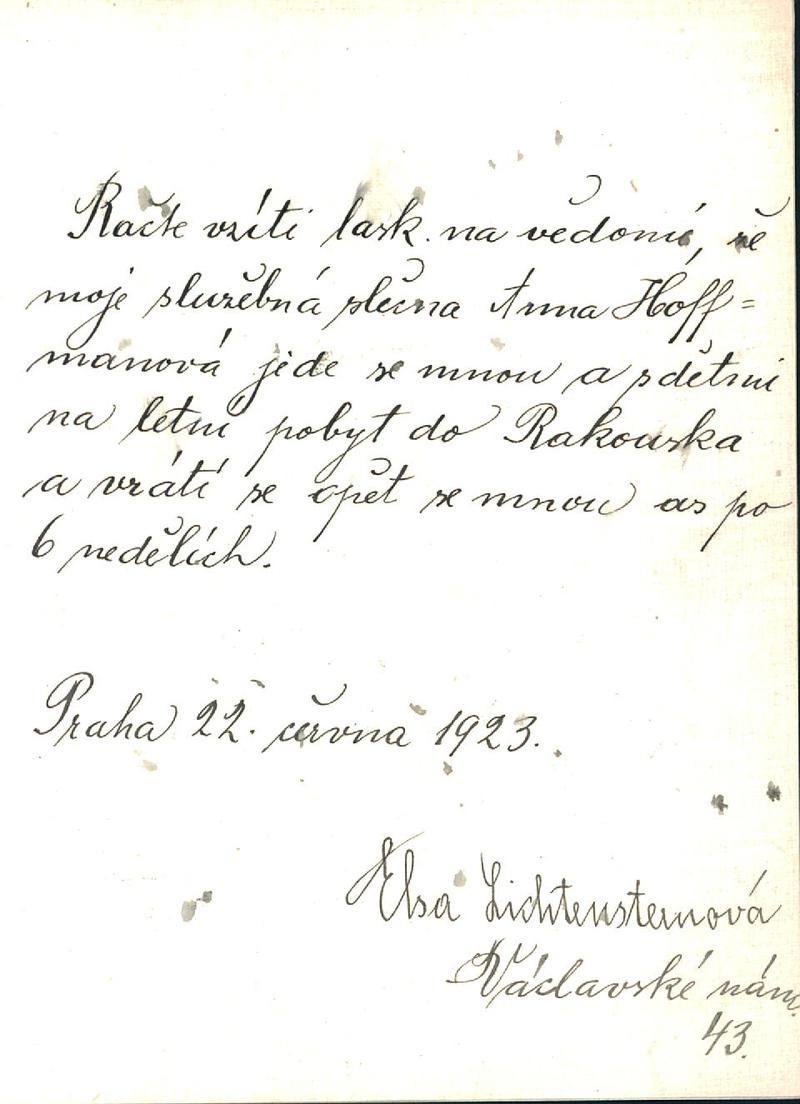 Račte vzíti lask. na vědomí, že
moje služebná slečna Anna Hoff=
manová jede se mnou a s dětmi
na letní pobyt do Rakouska
a vrátí se opět se mnou as po
6 nedělích.
Praha 22. června 1923.
Elsa Lichtensternová
Václavské nám.
43.